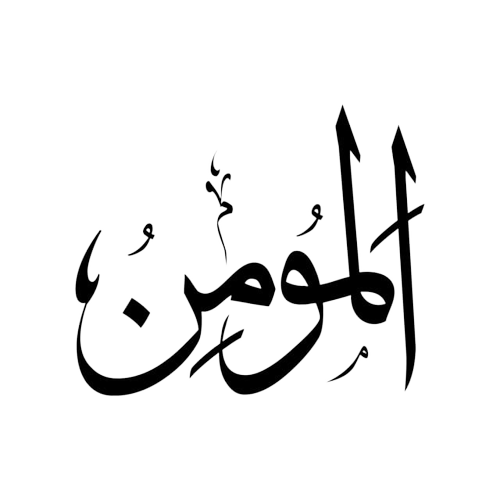 المُومِنُ